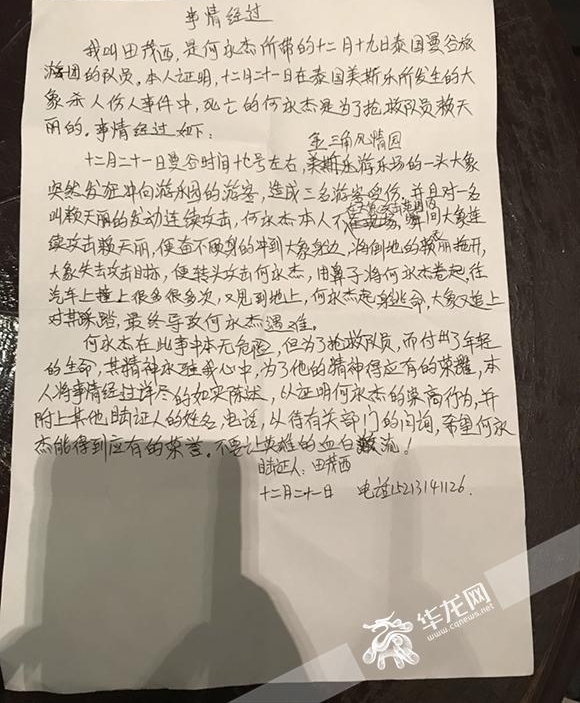 事情经过
我叫田茂西，是何永杰所带的十二月十九日泰国曼谷旅
游团的队员。本人证明，十二月二十一日在泰国美斯乐所发生的大
象杀人伤人事件中，死亡的何永杰是为了抢救队员赖天
丽的。事情经过如下：
金三角风情园
十二月二十一日曼谷时间十七号左右，美斯乐游乐场的一头大象
突然发狂冲向游乐园的游客，造成三名游客受伤，并且对一名
叫赖天丽的发动连续攻击，何永杰本人不在现场，瞬间大象连
续攻击赖天丽，便奋不顾身的冲到大象身边，将倒地的赖丽拖开，
大象失去攻击目标，便转头攻击何永杰，用鼻子将何永杰卷起，往
汽车上撞上很多很多次，又见到地上，何永杰起身逃命，大象又追上
对其踩踏，最终导致何永杰遇难。
何永杰在此事中本无危险，但为了抢救队员，而付出了年轻
的生命，其精神永驻我心中，为了他的精神得应有的荣耀，本
人将事情经过详尽的如实陈述，以证明何永杰的崇高行为，并
附上其他目睹证人的姓名，电话，以待有关部门的问询，希望何永
杰能得到应有的荣誉。不要让英雄的血白流！
目睹证人：田茂西
十二月二十一日 电话15213141126.
华龙网
www.cqnews.net